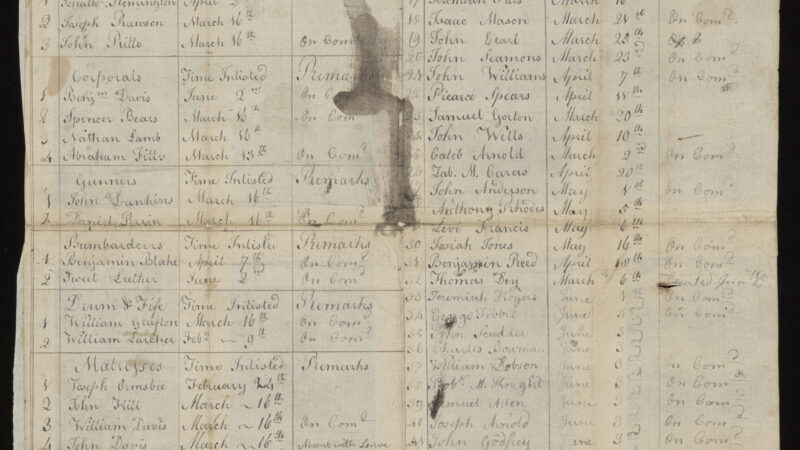 2 Joseph Pearson March 16th
3 John Pitts March 16th On Comd
Corporals Time Inlisted Remarks
1 Benjm Davis June 2nd On C
2 Spencer Bears March 16th On Com
3 Nathan Lamb March 16th
4 Abraham Pitts March 13th On Comd
Gunners Time Inlisted Remarks
1 John Dunkins March 16th
2 Daniel Perrin March 16th On Comd
Bumbardeers Time Inlisted Remarks
1 Benjamin Blake April 7th On Comd
2 Sweet Luther June 2 On Comd
Drum & Fife Time Inlisted Remarks
1 William Grafton March 16th On Comd
2 William Larcher Feby 9th On Comd
Matrosses Time Inlisted Remarks
1 Joseph Ormsbee February 24th
2 John Hill March 16th
3 William Davis March 16th On Comd
4 John Davis March 16th Absent with Leave
18 Isaac Mason March 21st On Comd
19 John Earl March 25th
20 John Seamons March 23 On Comd
21 John Williams April 7th On Comd
22 Piearce Spears April 11th
Samuel Gorton March 20th
John Wells April 10th
Caleb Arnold March 2nd On Comd
Zab. M. Carers April 20th
John Anderson May 1st On Comd
Anthony Rhodes May 5th
Levi Francis May 6th
30 Josiah Jones May 16th On Comd
31 Benjamin Reed April 18th On Comd
32 Thomas Dey March 6th
33 Jeremiah Rogers June 1 On Comd
34 George Tibbit June 3 On Comd
35 John Scudder June 3
36 Charles Boarman June 3
37 William Dobson June 3 On Comd
38 Robt M. Knight June 3 On Com
39 Samuel Allen June 3 On Com
40 Joseph Arnold June 3 On Comd
41 John Godfrey June 3 On Comd